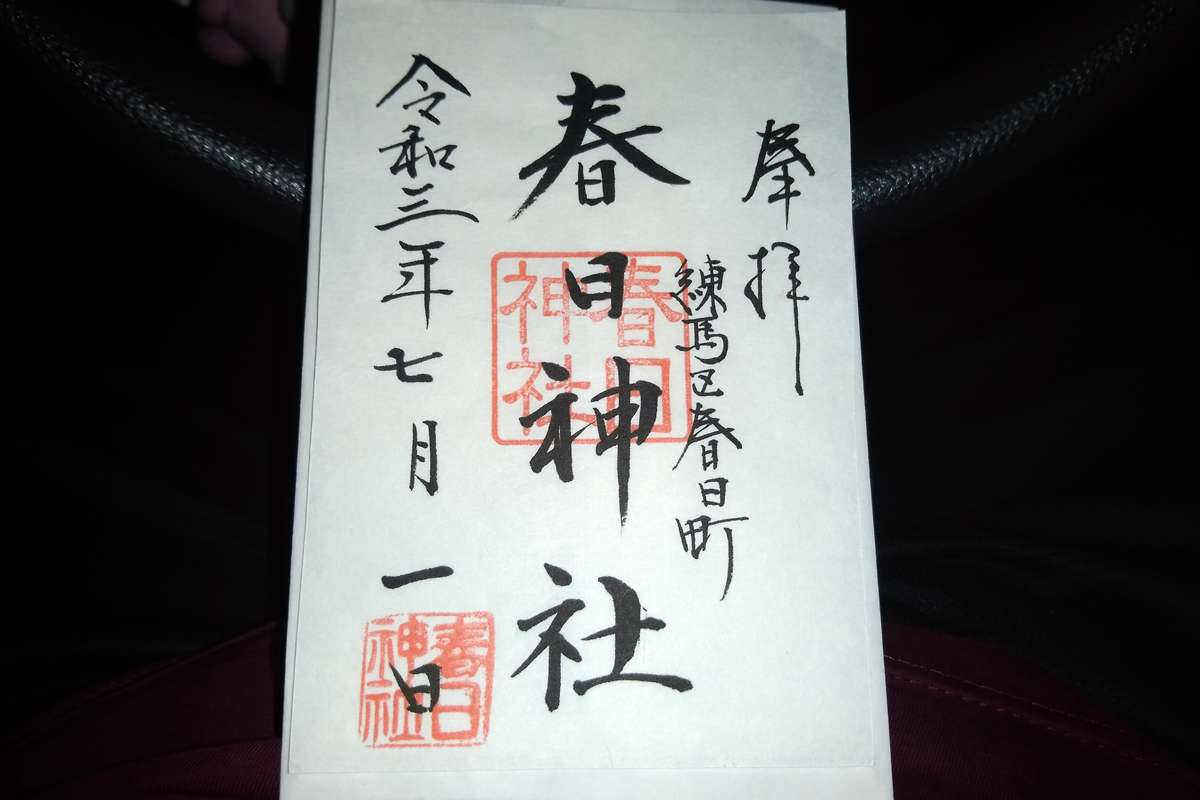 奉拝
練馬区春日町
春日神社
春日
神社
令和三年七月一日
春日
神社